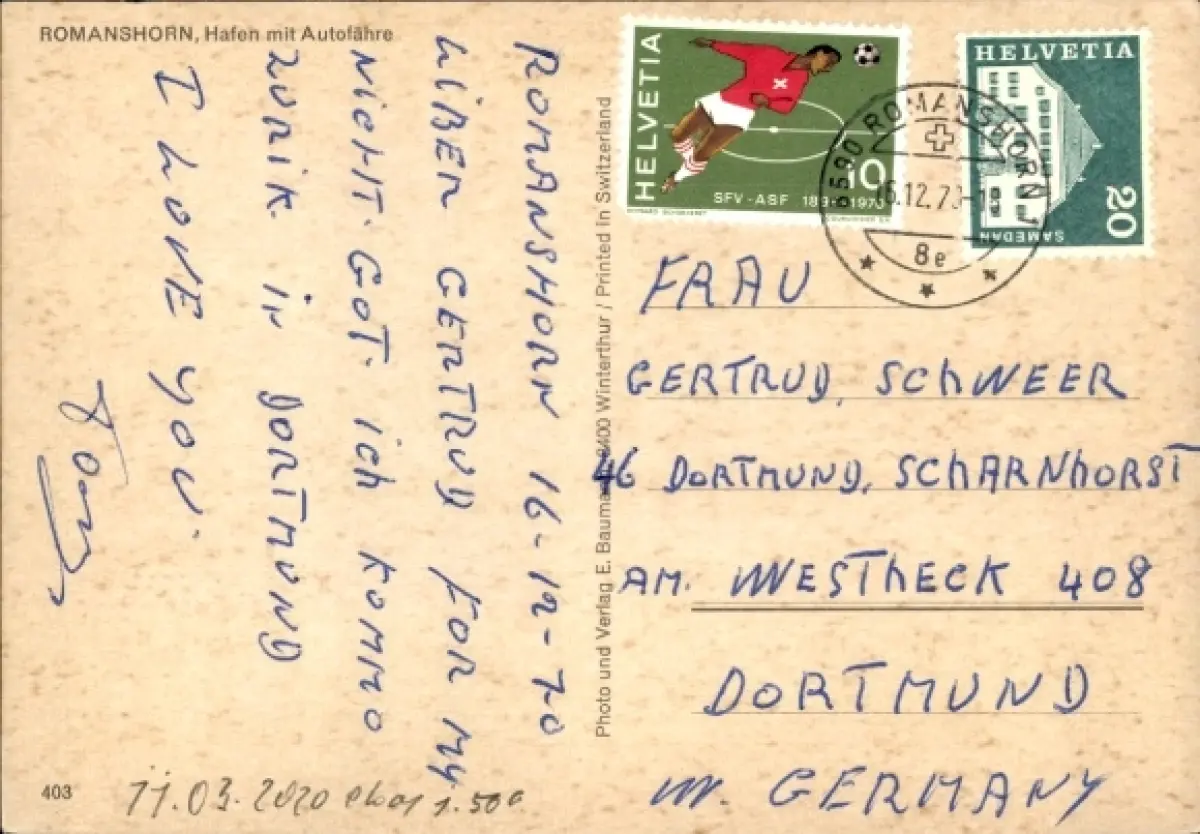 ROMANSHORN, Hafen mit Autofähre
ROMANSHORN 16-12-70
LIBEN GERTRUD FOR MY
NICHT. GOT. ICH KOMMO
ZURIK IN DORTMUND
I LOVE YOU.
403
11.03.2020 ebay 1.50€
Photo und Verlag E. Baumann, 8400 Winterthur / Printed in Switzerland
HELVETIA
10
SFV-ASF 1895-1970
HELVETIA
20
SAMEDAN
8590 ROMANSHORN
12.70
8e
FRAU
GERTRUD, SCHWEER
46 DORTMUND, SCHARNHORST
AM. WESTHECK 408
DORTMUND
W. GERMANY